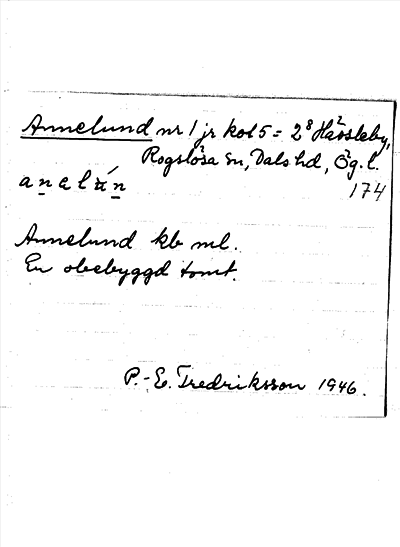 Annelund nr 1 jr kol 5 = 2⁸ Hässleby,
Rogslösa sn, Dals hd, Ög. l.
174
Annelund kb ml.
En obebyggd tomt.
P.-E. Fredriksson 1946.